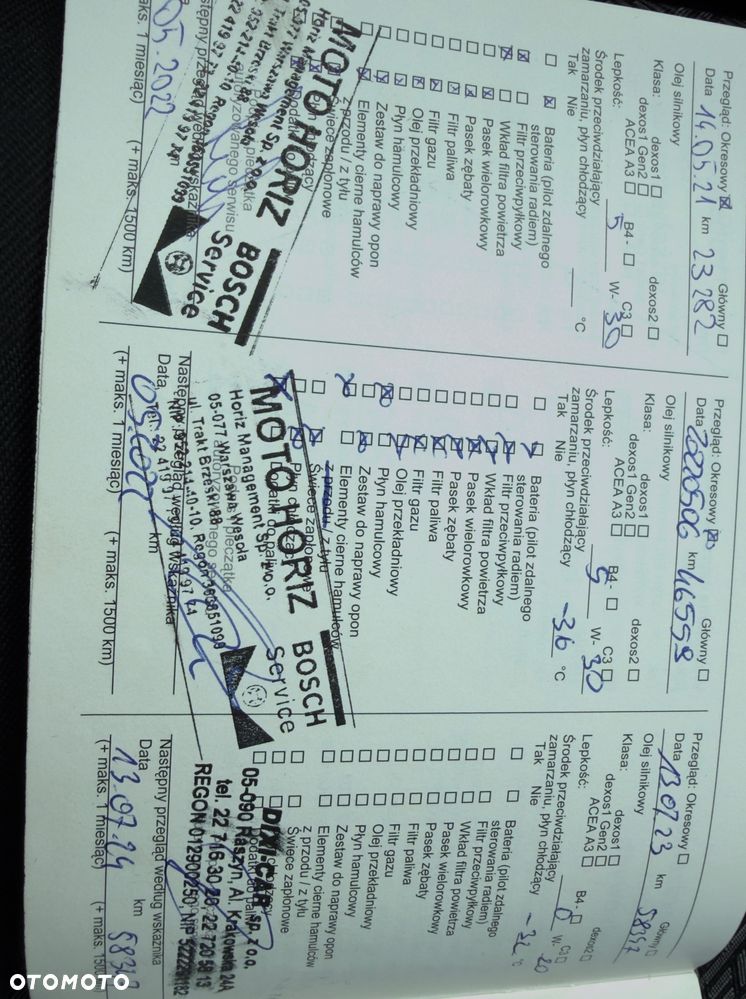 Przegląd: Okresowy Główny
Data 14.05.21 km 23282
Olej silnikowy
Klasa: dexos1 dexos2
dexos1 Gen2
Lepkość: ACEA A3 B4- C3
5 W- 30
Środek przeciwdziałający
zamarzaniu, płyn chłodzący °C
Tak Nie
Bateria (pilot zdalnego
sterowania radiem)
Filtr przeciwpyłkowy
Wkład filtra powietrza
Pasek wielorowkowy
Pasek zębaty
Filtr paliwa
Filtr gazu
Olej przekładniowy
Płyn hamulcowy
Zestaw do naprawy opon
Elementy cierne hamulców
z przodu / z tyłu
Świece zapłonowe
MOTO HORIZ
BOSCH
Service
Horiz Management Sp. z o.o.
Następny przegląd według wskaźnika
05.2022
(+ maks. 1 miesiąc) (+ maks. 1500 km)
Przegląd: Okresowy Główny
Data 20220506 km 46559
Olej silnikowy
Klasa: dexos1 dexos2
dexos1 Gen2
Lepkość: ACEA A3 B4- C3
5 W- 30
Środek przeciwdziałający
zamarzaniu, płyn chłodzący -36 °C
Tak Nie
Bateria (pilot zdalnego
sterowania radiem)
Filtr przeciwpyłkowy
Wkład filtra powietrza
Pasek wielorowkowy
Pasek zębaty
Filtr paliwa
Filtr gazu
Olej przekładniowy
Płyn hamulcowy
Zestaw do naprawy opon
Elementy cierne hamulców
z przodu / z tyłu
Świece zapłonowe
MOTO HORIZ
BOSCH
Service
Horiz Management Sp. z o.o.
05-077 Warszawa Wesoła
ul. Trakt Brzeski
Następny przegląd według wskaźnika
Data km
(+ maks. 1 miesiąc) (+ maks. 1500 km)
Przegląd: Okresowy Główny
Data 130723 km 58347
Olej silnikowy
Klasa: dexos1 dexos2
dexos1 Gen2
Lepkość: ACEA A3 B4- C3
0 W- 20
Środek przeciwdziałający
zamarzaniu, płyn chłodzący -32 °C
Tak Nie
Bateria (pilot zdalnego
sterowania radiem)
Filtr przeciwpyłkowy
Wkład filtra powietrza
Pasek wielorowkowy
Pasek zębaty
Filtr paliwa
Filtr gazu
Olej przekładniowy
Płyn hamulcowy
Zestaw do naprawy opon
Elementy cierne hamulców
z przodu / z tyłu
Świece zapłonowe
DIXI-CAR sp. z o.o.
05-090 Raszyn, Al. Krakowska
tel. 22 716 30 20, 22 720
REGON 012900250, NIP
Następny przegląd według wskaźnika
Data km
13.07.24
(+ maks. 1 miesiąc) (+ maks. 1500
OTOMOTO